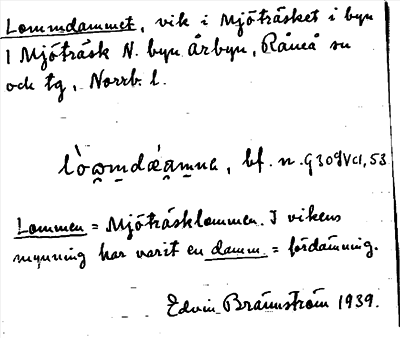 Lommdammet, vik i Mjöträsket i byn
1 Mjöträsk N. byn Årbyn, Råneå sn
och tg, Norrb. l.
lòo̯m̥dæ̀a̯m̥na, bf. n. G309Vc1,53
Lommen = Mjöträsklommen. I vikens
mynning har varit en damm = fördämning.
Edvin Brännström 1939.